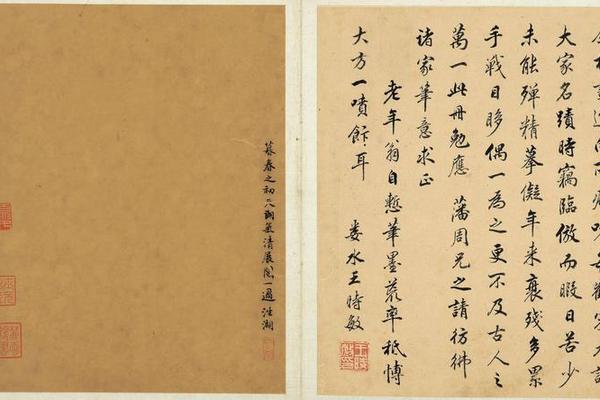 大家名蹟時竊臨倣而暇日苦少
未能殫精摹儗年來衰殘多累
手戰目眵偶一為之更不及古人之
萬一此冊勉應 藩周兄之請彷彿
諸家筆意求正
老年翁自慙筆墨荒率秪博
大方一噴飰耳
婁水王時敏
暮春之初天朗氣清展閱一過